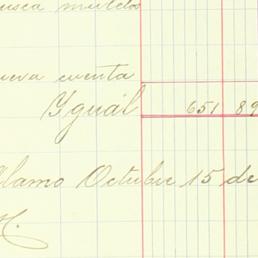 busca muletos
nueva cuenta
Ygual 651 89
Alamo Octubre 15 de
H.